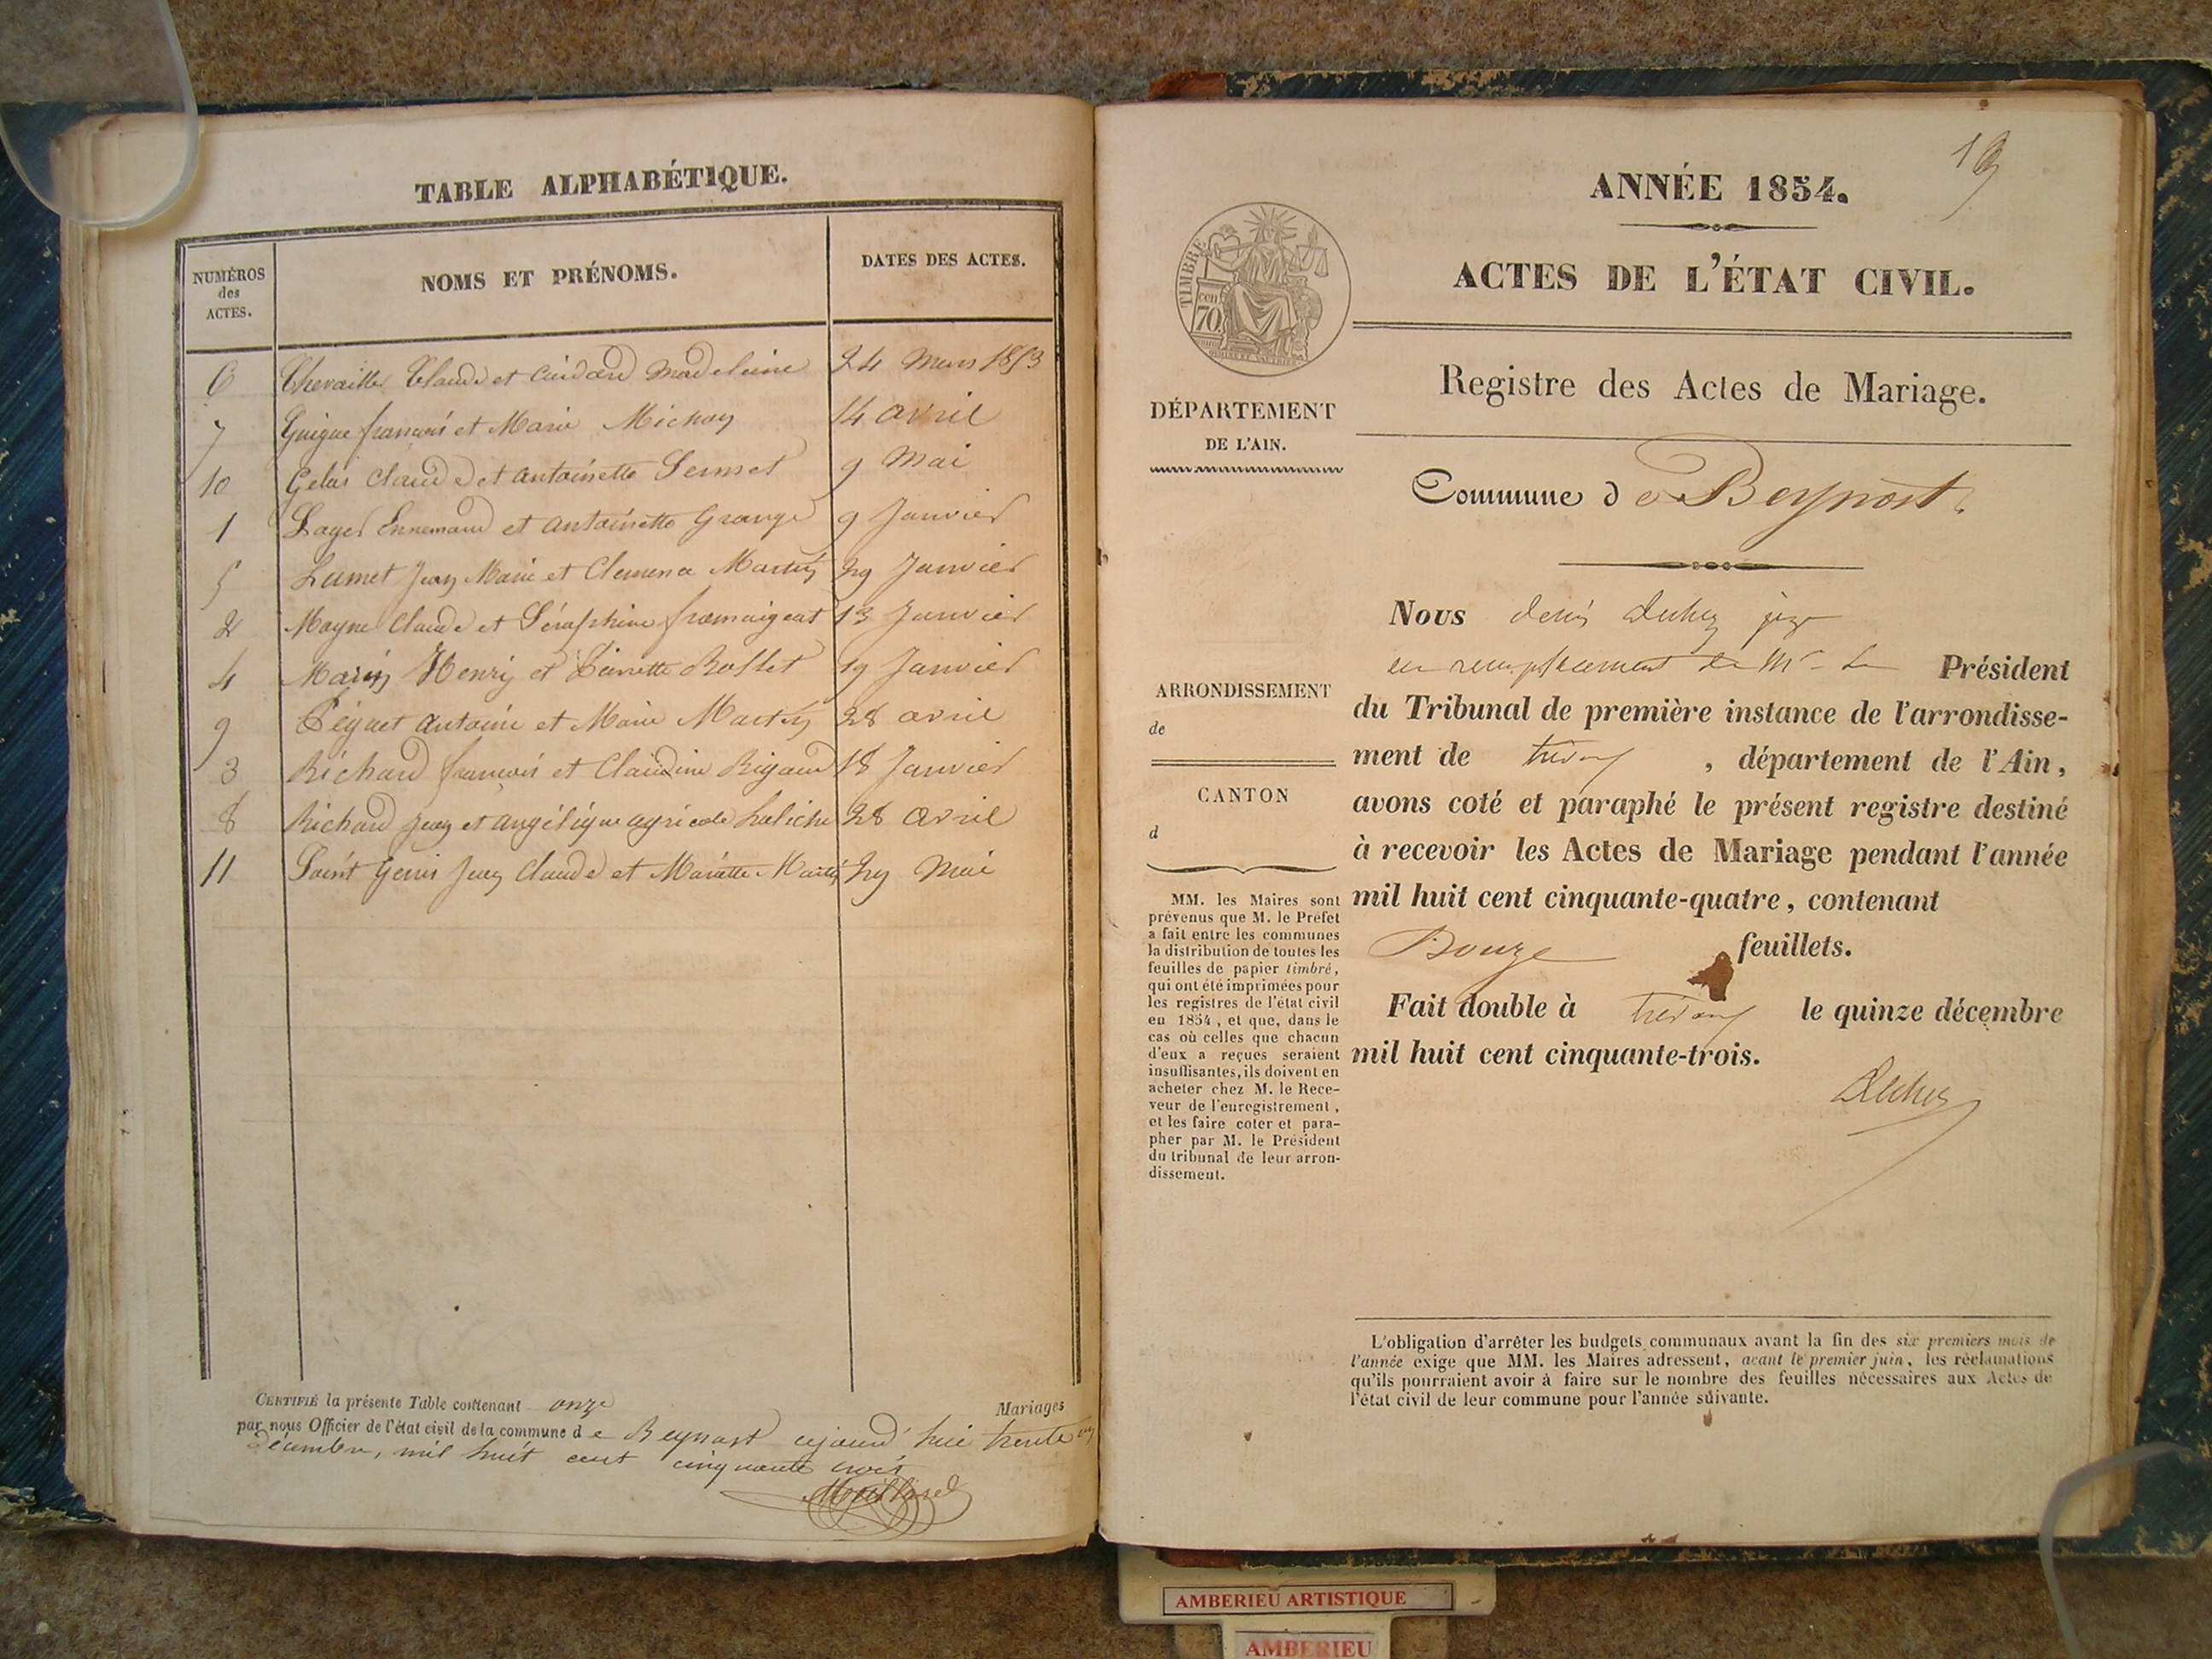 TABLE ALPHABÉTIQUE.
NUMÉROS
des
ACTES.
NOMS ET PRÉNOMS.
DATES DES ACTES.
6 Claude et Madeleine 24 Mars 1853
7 Guigue francois et Marie Michon 14 avril
10 Gelas Claude et antoinette 9 Mai
1 Ennemand et antoinette Grange 9 Janvier
5 Jean Marie et Clemence Martin 29 Janvier
2 Claude et Séraphine 13 Janvier
4 Henry et Pierrette 19 Janvier
9 Péguet antoine et Marie Martin 28 avril
3 Richard francois et Claudine Rigaud 18 Janvier
8 Richard Jean et angélique agricole 28 avril
11 Saint Genis Jean Claude et Mariette 29 Mai
CERTIFIÉ la présente Table contenant onze Mariages
par nous Officier de l'état civil de la commune de Beynost aujourd'hui trente un
décembre, mil huit cent cinquante trois
19
ANNÉE 1854.
ACTES DE L'ÉTAT CIVIL.
TIMBRE
cen
70.
Registre des Actes de Mariage.
DÉPARTEMENT
DE L'AIN.
Commune de Beynost.
Nous denis juge
en remplacement de Mr le Président
ARRONDISSEMENT
de
CANTON
d
du Tribunal de première instance de l'arrondisse-
ment de trévoux, département de l'Ain,
avons coté et paraphé le présent registre destiné
à recevoir les Actes de Mariage pendant l'année
mil huit cent cinquante-quatre, contenant
Douze feuillets.
Fait double à trévoux le quinze décembre
mil huit cent cinquante-trois.
MM. les Maires sont
prévenus que M. le Préfet
a fait entre les communes
la distribution de toutes les
feuilles de papier timbré,
qui ont été imprimées pour
les registres de l'état civil
en 1854, et que, dans le
cas où celles que chacun
d'eux a reçues seraient
insuffisantes, ils doivent en
acheter chez M. le Rece-
veur de l'enregistrement,
et les faire coter et para-
pher par M. le Président
du tribunal de leur arron-
dissement.
L'obligation d'arrêter les budgets communaux avant la fin des six premiers mois de
l'année exige que MM. les Maires adressent, avant le premier juin, les réclamations
qu'ils pourraient avoir à faire sur le nombre des feuilles nécessaires aux Actes de
l'état civil de leur commune pour l'année suivante.
AMBERIEU ARTISTIQUE
AMBERIEU